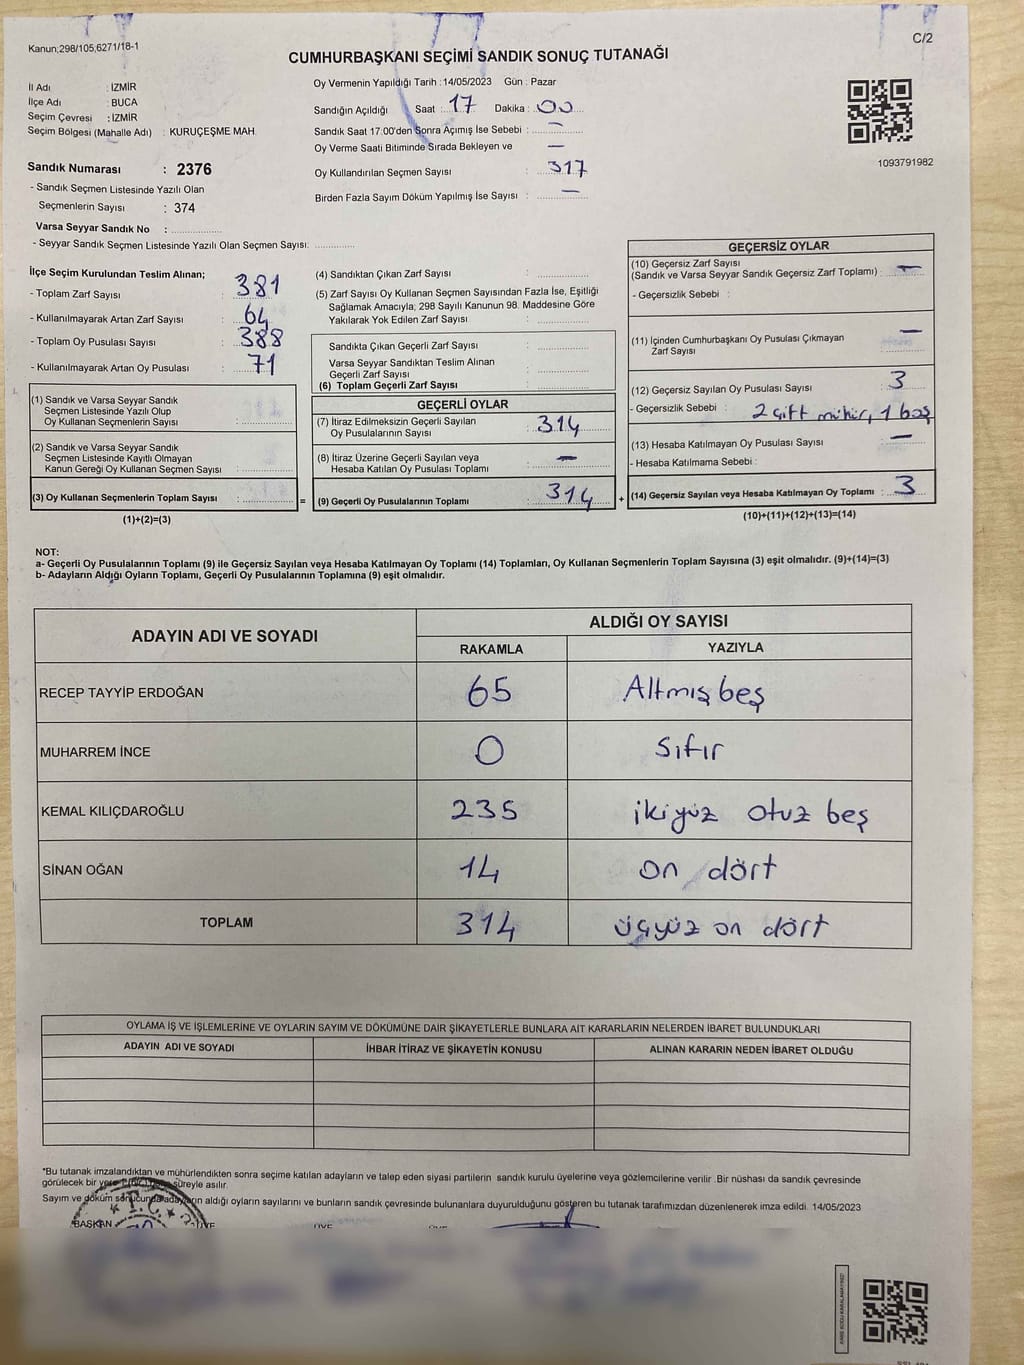 Kanun;298/105;6271/18-1
C/2
CUMHURBAŞKANI SEÇİMİ SANDIK SONUÇ TUTANAĞI
İl Adı : İZMİR
İlçe Adı : BUCA
Seçim Çevresi : İZMİR
Seçim Bölgesi (Mahalle Adı) : KURUÇEŞME MAH.
Sandık Numarası : 2376
- Sandık Seçmen Listesinde Yazılı Olan
Seçmenlerin Sayısı : 374
Varsa Seyyar Sandık No :
- Seyyar Sandık Seçmen Listesinde Yazılı Olan Seçmen Sayısı:
Oy Vermenin Yapıldığı Tarih :14/05/2023 Gün : Pazar
Sandığın Açıldığı Saat : 17 Dakika : 00
Sandık Saat 17:00'den Sonra Açımış İse Sebebi : —
Oy Verme Saati Bitiminde Sırada Bekleyen ve —
Oy Kullandırılan Seçmen Sayısı : 317
Birden Fazla Sayım Döküm Yapılmış İse Sayısı : —
1093791982
İlçe Seçim Kurulundan Teslim Alınan;
- Toplam Zarf Sayısı : 381
- Kullanılmayarak Artan Zarf Sayısı : 64
- Toplam Oy Pusulası Sayısı : 388
- Kullanılmayarak Artan Oy Pusulası : 71
(1) Sandık ve Varsa Seyyar Sandık
Seçmen Listesinde Yazılı Olup
Oy Kullanan Seçmenlerin Sayısı :
(2) Sandık ve Varsa Seyyar Sandık
Seçmen Listesinde Kayıtlı Olmayan
Kanun Gereği Oy Kullanan Seçmen Sayısı :
(3) Oy Kullanan Seçmenlerin Toplam Sayısı :
(1)+(2)=(3)
(4) Sandıktan Çıkan Zarf Sayısı :
(5) Zarf Sayısı Oy Kullanan Seçmen Sayısından Fazla İse, Eşitliği
Sağlamak Amacıyla; 298 Sayılı Kanunun 98. Maddesine Göre
Yakılarak Yok Edilen Zarf Sayısı :
Sandıkta Çıkan Geçerli Zarf Sayısı :
Varsa Seyyar Sandıktan Teslim Alınan
Geçerli Zarf Sayısı :
(6) Toplam Geçerli Zarf Sayısı :
GEÇERLİ OYLAR
(7) İtiraz Edilmeksizin Geçerli Sayılan
Oy Pusulalarının Sayısı : 314
(8) İtiraz Üzerine Geçerli Sayılan veya
Hesaba Katılan Oy Pusulası Toplamı : —
= (9) Geçerli Oy Pusulalarının Toplamı : 314 +
GEÇERSİZ OYLAR
(10) Geçersiz Zarf Sayısı
(Sandık ve Varsa Seyyar Sandık Geçersiz Zarf Toplamı) : —
- Geçersizlik Sebebi :
(11) İçinden Cumhurbaşkanı Oy Pusulası Çıkmayan —
Zarf Sayısı :
(12) Geçersiz Sayılan Oy Pusulası Sayısı : 3
- Geçersizlik Sebebi : 2 çift mühür, 1 boş
(13) Hesaba Katılmayan Oy Pusulası Sayısı : —
- Hesaba Katılmama Sebebi :
(14) Geçersiz Sayılan veya Hesaba Katılmayan Oy Toplamı : 3
(10)+(11)+(12)+(13)=(14)
NOT:
a- Geçerli Oy Pusulalarının Toplamı (9) ile Geçersiz Sayılan veya Hesaba Katılmayan Oy Toplamı (14) Toplamları, Oy Kullanan Seçmenlerin Toplam Sayısına (3) eşit olmalıdır. (9)+(14)=(3)
b- Adayların Aldığı Oyların Toplamı, Geçerli Oy Pusulalarının Toplamına (9) eşit olmalıdır.
ADAYIN ADI VE SOYADI ALDIĞI OY SAYISI
RAKAMLA YAZIYLA
RECEP TAYYİP ERDOĞAN 65 Altmış beş
MUHARREM İNCE 0 Sıfır
KEMAL KILIÇDAROĞLU 235 ikiyüz otuz beş
SİNAN OĞAN 14 on dört
TOPLAM 314 üçyüz on dört
OYLAMA İŞ VE İŞLEMLERİNE VE OYLARIN SAYIM VE DÖKÜMÜNE DAİR ŞİKAYETLERLE BUNLARA AİT KARARLARIN NELERDEN İBARET BULUNDUKLARI
ADAYIN ADI VE SOYADI İHBAR İTİRAZ VE ŞİKAYETİN KONUSU ALINAN KARARIN NEDEN İBARET OLDUĞU
*Bu tutanak imzalandıktan ve mühürlendikten sonra seçime katılan adayların ve talep eden siyasi partilerin sandık kurulu üyelerine veya gözlemcilerine verilir .Bir nüshası da sandık çevresinde
görülecek bir yere süreyle asılır.
Sayım ve döküm sonucunda adayların aldığı oyların sayılarını ve bunların sandık çevresinde bulunanlara duyurulduğunu gösteren bu tutanak tarafımızdan düzenlenerek imza edildi. 14/05/2023
T.C.
BAŞKAN